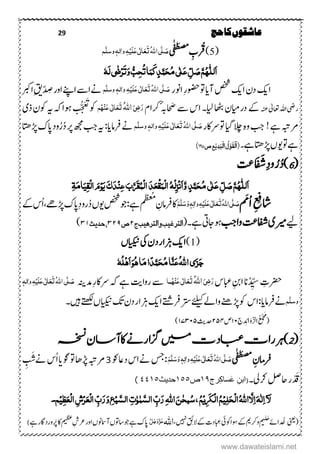 29 عاشقوں کا حج
(5) قُربِ مُصطَفٰے صَلَّى اللهُ تَعَالٰى عَلَيْهِ وَاٰلِهٖ وَسَلَّم
اَللّٰهُمَّ صَلِّ عَلٰى مُحَمَّدٍ كَمَا تُحِبُّ وَتَرْضٰى لَهٗ
ایک دن ایک شخص آیا تو حضورِ انور صَلَّى اللهُ تَعَالٰى عَلَيْهِ وَاٰلِهٖ وَسَلَّم نے اسے اپنے اور صِدِّیقِ اکبر
رضی اللہ تعالٰی عنہ کے درمیان بٹھا لیا۔ اس سے صحابہ کرام رَضِىَ اللهُ تَعَالٰى عَنْهُم کو تَعَجُّب ہوا کہ یہ کون ذی
مرتبہ ہے! جب وہ چلا گیا تو سرکار صَلَّى اللهُ تَعَالٰى عَلَيْهِ وَاٰلِهٖ وَسَلَّم نے فرمایا: یہ جب مجھ پر دُرُودِ پاک پڑھتا
ہے تو یوں پڑھتا ہے۔ (اَلْقَوْلُ الْبَدِیع ص)
(6) دُرُودِ شَفَاعَت
اَللّٰهُمَّ صَلِّ عَلٰى مُحَمَّدٍ وَّاَنْزِلْهُ الْمَقْعَدَ الْمُقَرَّبَ عِنْدَكَ يَوْمَ الْقِيَامَةِ
شافعِ اُمَم صَلَّى اللهُ تَعَالٰى عَلَيْهِ وَاٰلِهٖ وَسَلَّم کا فرمانِ معظّم ہے: جو شخص یوں دُرودِ پاک پڑھے، اُس کے
لیے میری شفاعت واجب ہو جاتی ہے۔ (الترغیب والترھیب ج2 ص329، حدیث 31)
(1) ایک ہزار دن کی نیکیاں
جَزَى اللهُ عَنَّا مُحَمَّدًا مَّا هُوَ اَهْلُهٗ
حضرتِ سیِّدُنا ابنِ عباس رَضِىَ اللهُ تَعَالٰى عَنْهُمَا سے روایت ہے کہ سرکارِ مدینہ صَلَّى اللهُ تَعَالٰى عَلَيْهِ وَاٰلِهٖ
وَسَلَّم نے فرمایا: اس کو پڑھنے والے کیلئے ستر فرشتے ایک ہزار دن تک نیکیاں لکھتے ہیں۔
(مَجْمَعُ الزَّوَائِد ج10 ص254 حدیث 17305)
(2) ہر رات عبادت میں گزارنے کا آسان نسخہ
فرمانِ مُصطَفٰے صَلَّى اللهُ تَعَالٰى عَلَيْهِ وَاٰلِهٖ وَسَلَّم: جس نے اس دعا کو 3 مرتبہ پڑھا تو گویا اُس نے شَبِ
قَدْر حاصل کر لی۔ (ابن عساکر ج19 ص155 حدیث 4415)
لَآ اِلٰهَ اِلَّا اللهُ الْحَلِيْمُ الْكَرِيْمُ، سُبْحٰنَ اللهِ رَبِّ السَّمٰوٰتِ السَّبْعِ وَرَبِّ الْعَرْشِ الْعَظِيْم۔
(یعنی خدائے حلیم و کریم کے سوا کوئی عبادت کے لائق نہیں، اللہ عَزَّوَجَلَّ پاک ہے جو ساتوں آسمانوں اور عرشِ عظیم کا پروردگار ہے)
www.dawateislami.net